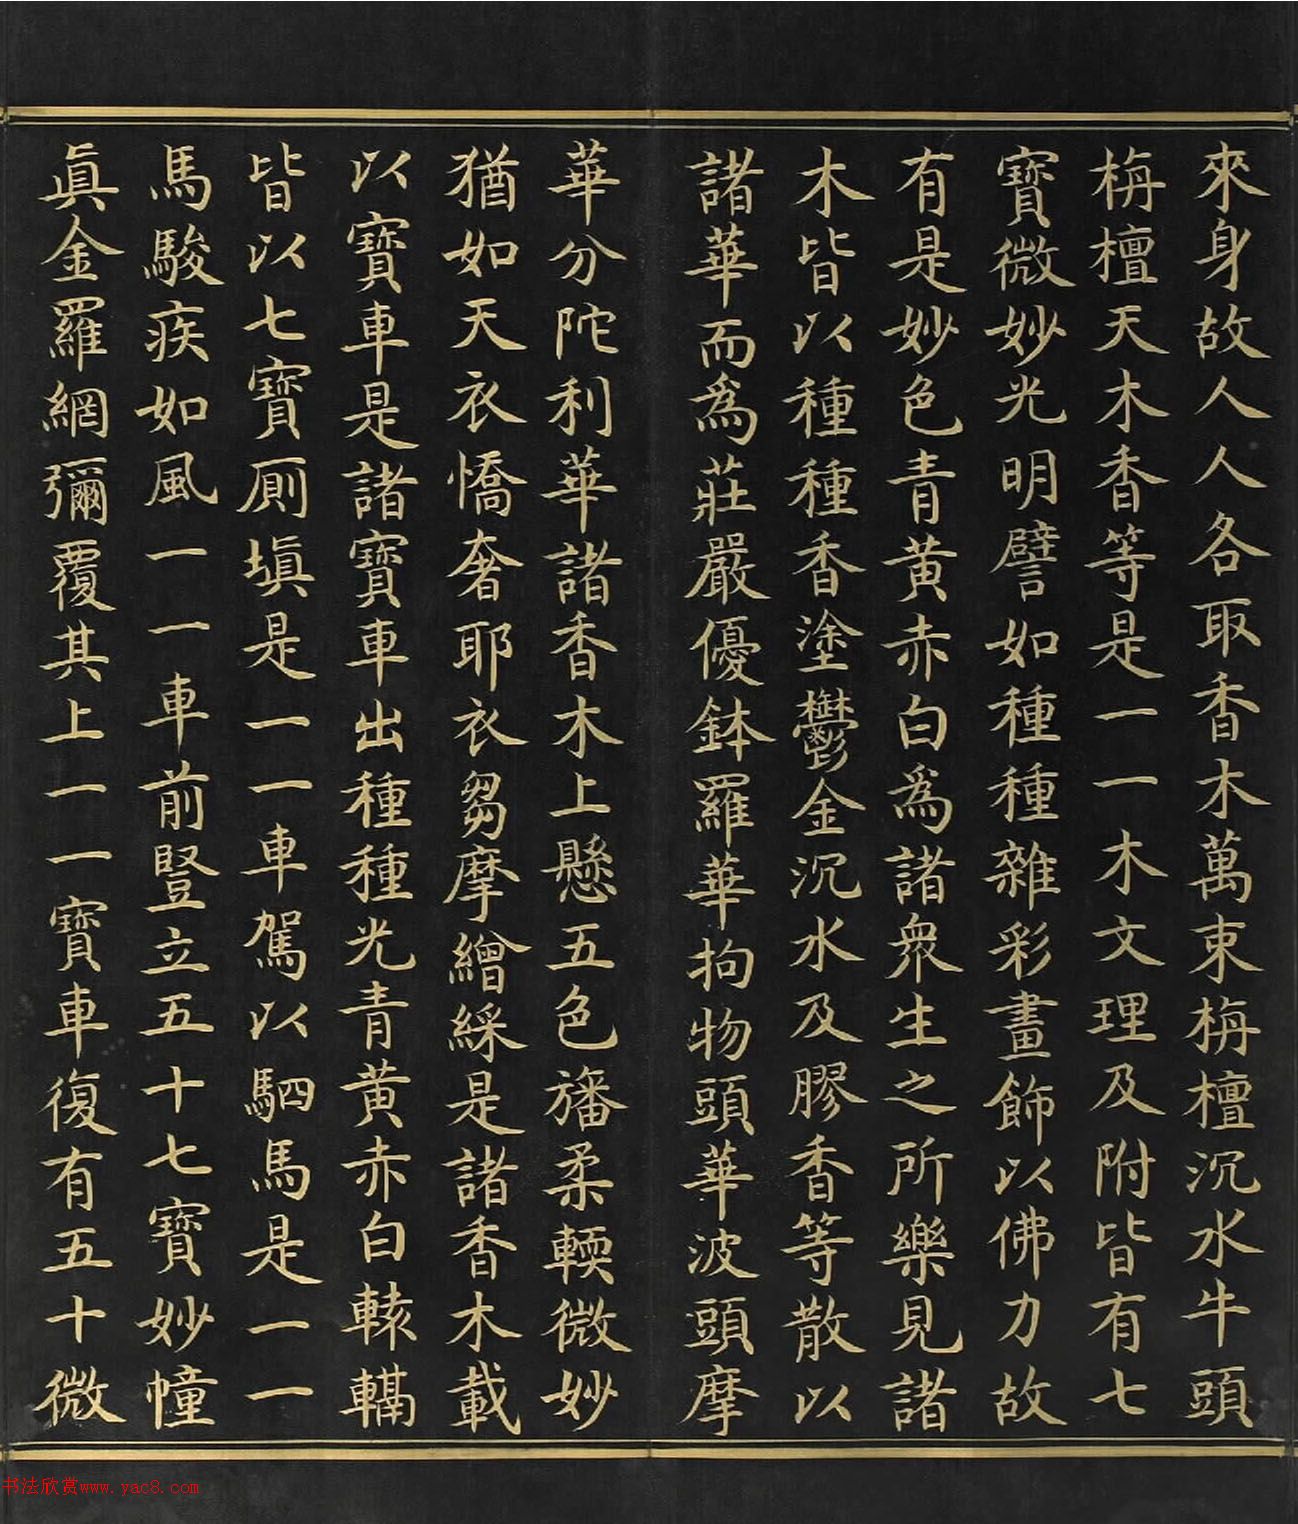 來身故人人各取香木萬束栴檀沉水牛頭
栴檀天木香等是一一木文理及附皆有七
寶微妙光明譬如種種雜彩畫飾以佛力故
有是妙色青黄赤白為諸衆生之所樂見諸
木皆以種種香塗鬱金沉水及膠香等散以
諸華而為莊嚴優鉢羅華拘物頭華波頭摩
華分陀利華諸香木上懸五色旛柔輭微妙
猶如天衣憍奢耶衣芻摩繒綵是諸香木載
以寶車是諸寶車出種種光青黄赤白轅轕
皆以七寶厠塡是一一車駕以駟馬是一一
馬駿疾如風一一車前豎立五十七寶妙幢
眞金羅網彌覆其上一一寶車復有五十微
书法欣赏www.yac8.com